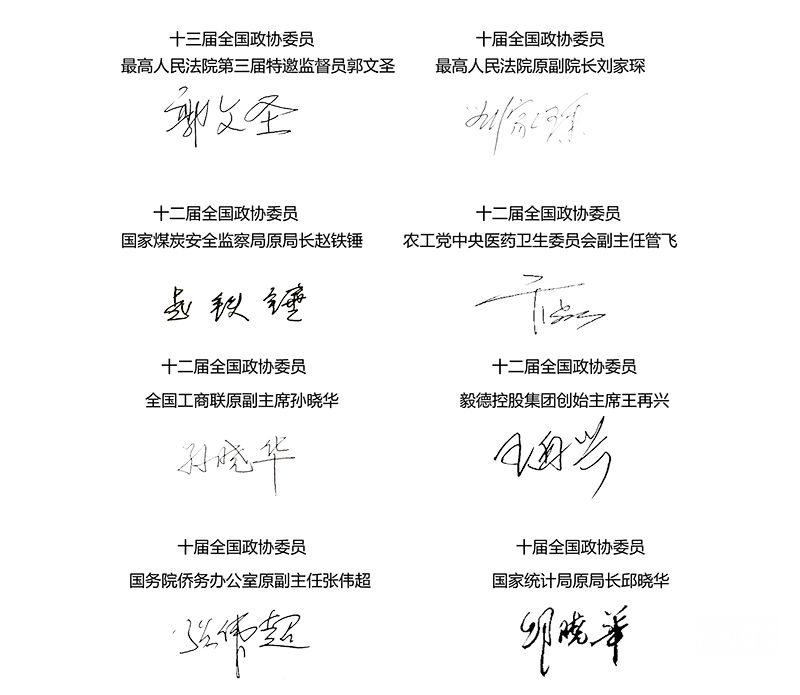 十三届全国政协委员
最高人民法院第三届特邀监督员郭文圣
郭文圣
十届全国政协委员
最高人民法院原副院长刘家琛
刘家琛
十二届全国政协委员
国家煤炭安全监察局原局长赵铁锤
赵铁锤
十二届全国政协委员
农工党中央医药卫生委员会副主任管飞
十二届全国政协委员
全国工商联原副主席孙晓华
孙晓华
十二届全国政协委员
毅德控股集团创始主席王再兴
王再兴
十届全国政协委员
国务院侨务办公室原副主任张伟超
张伟超
十届全国政协委员
国家统计局原局长邱晓华
邱晓华